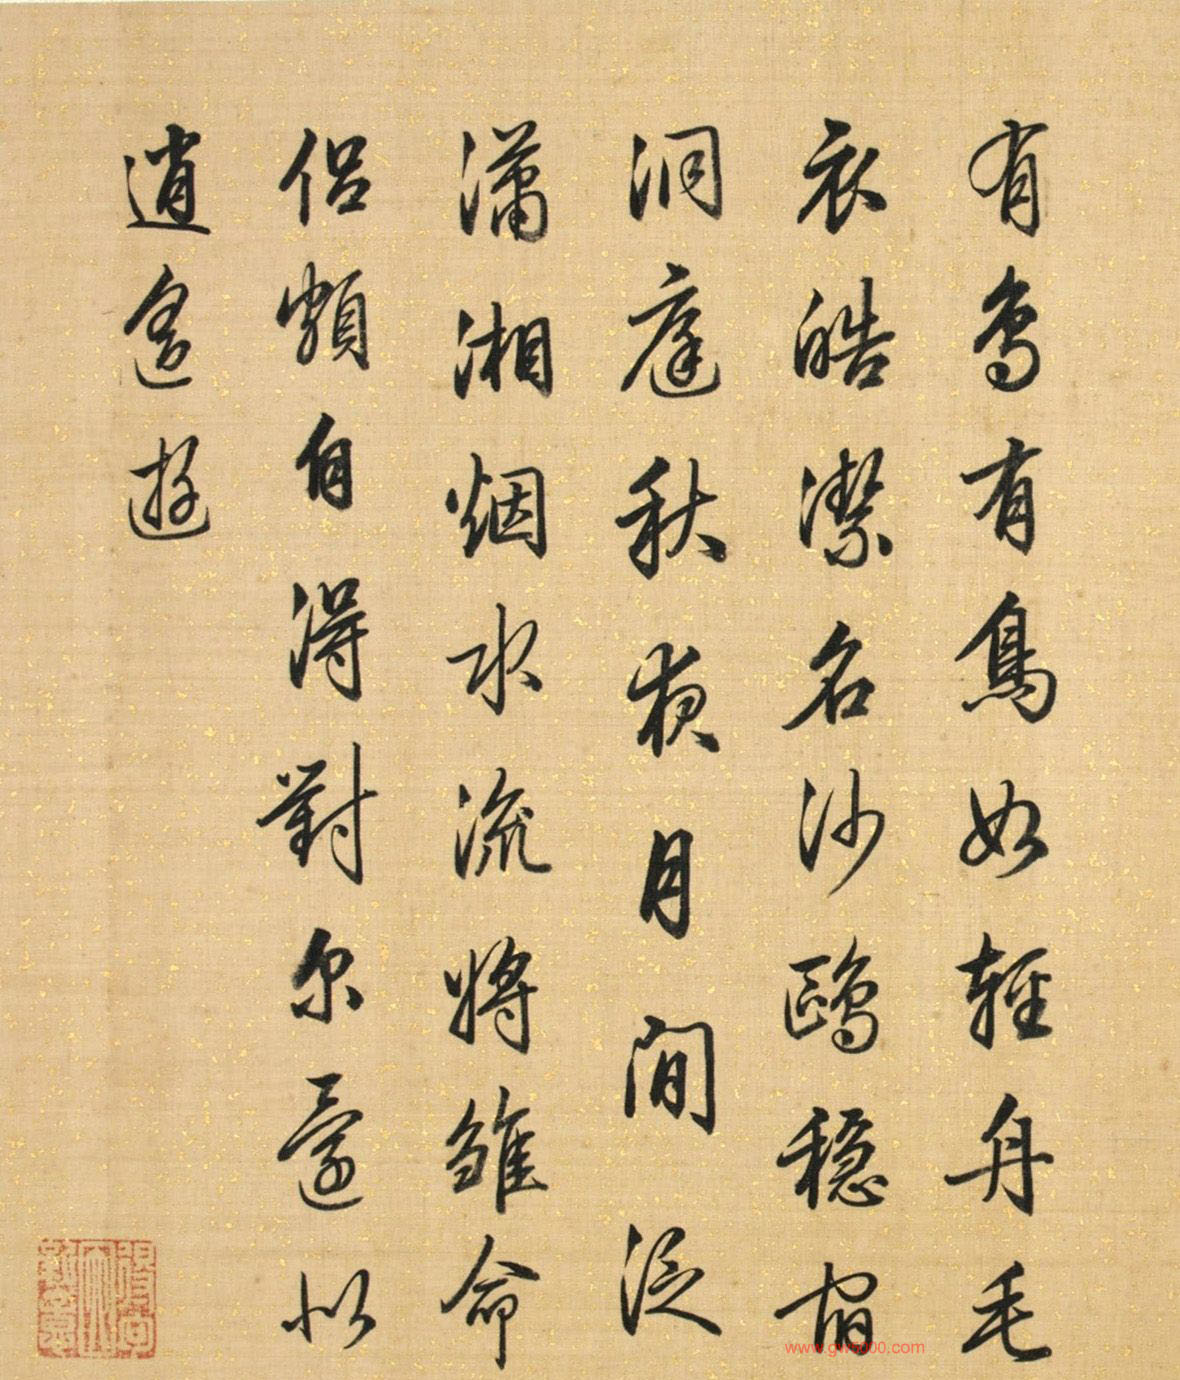 有鳥有鳥如輕舟毛
衣皓潔名沙鷗穩宿
洞庭秋夜月間泛
瀟湘烟水流將雛命
侣頗自得對尔還以
逍遙遊
www.gwz000.com